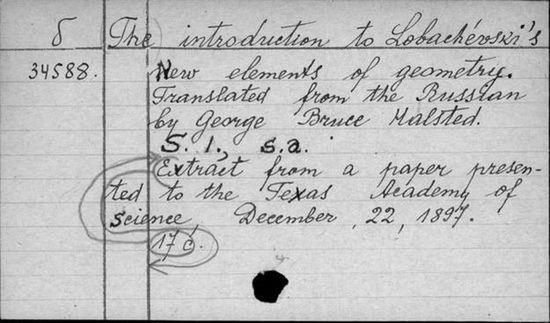 б The introduction to Lobachévski's
34588. New elements of geometry.
Translated from the Russian
by George Bruce Halsted.
S. l., s.a.
Extract from a paper presen-
ted to the Texas Academy of
Science, December, 22, 1897.
17 с.